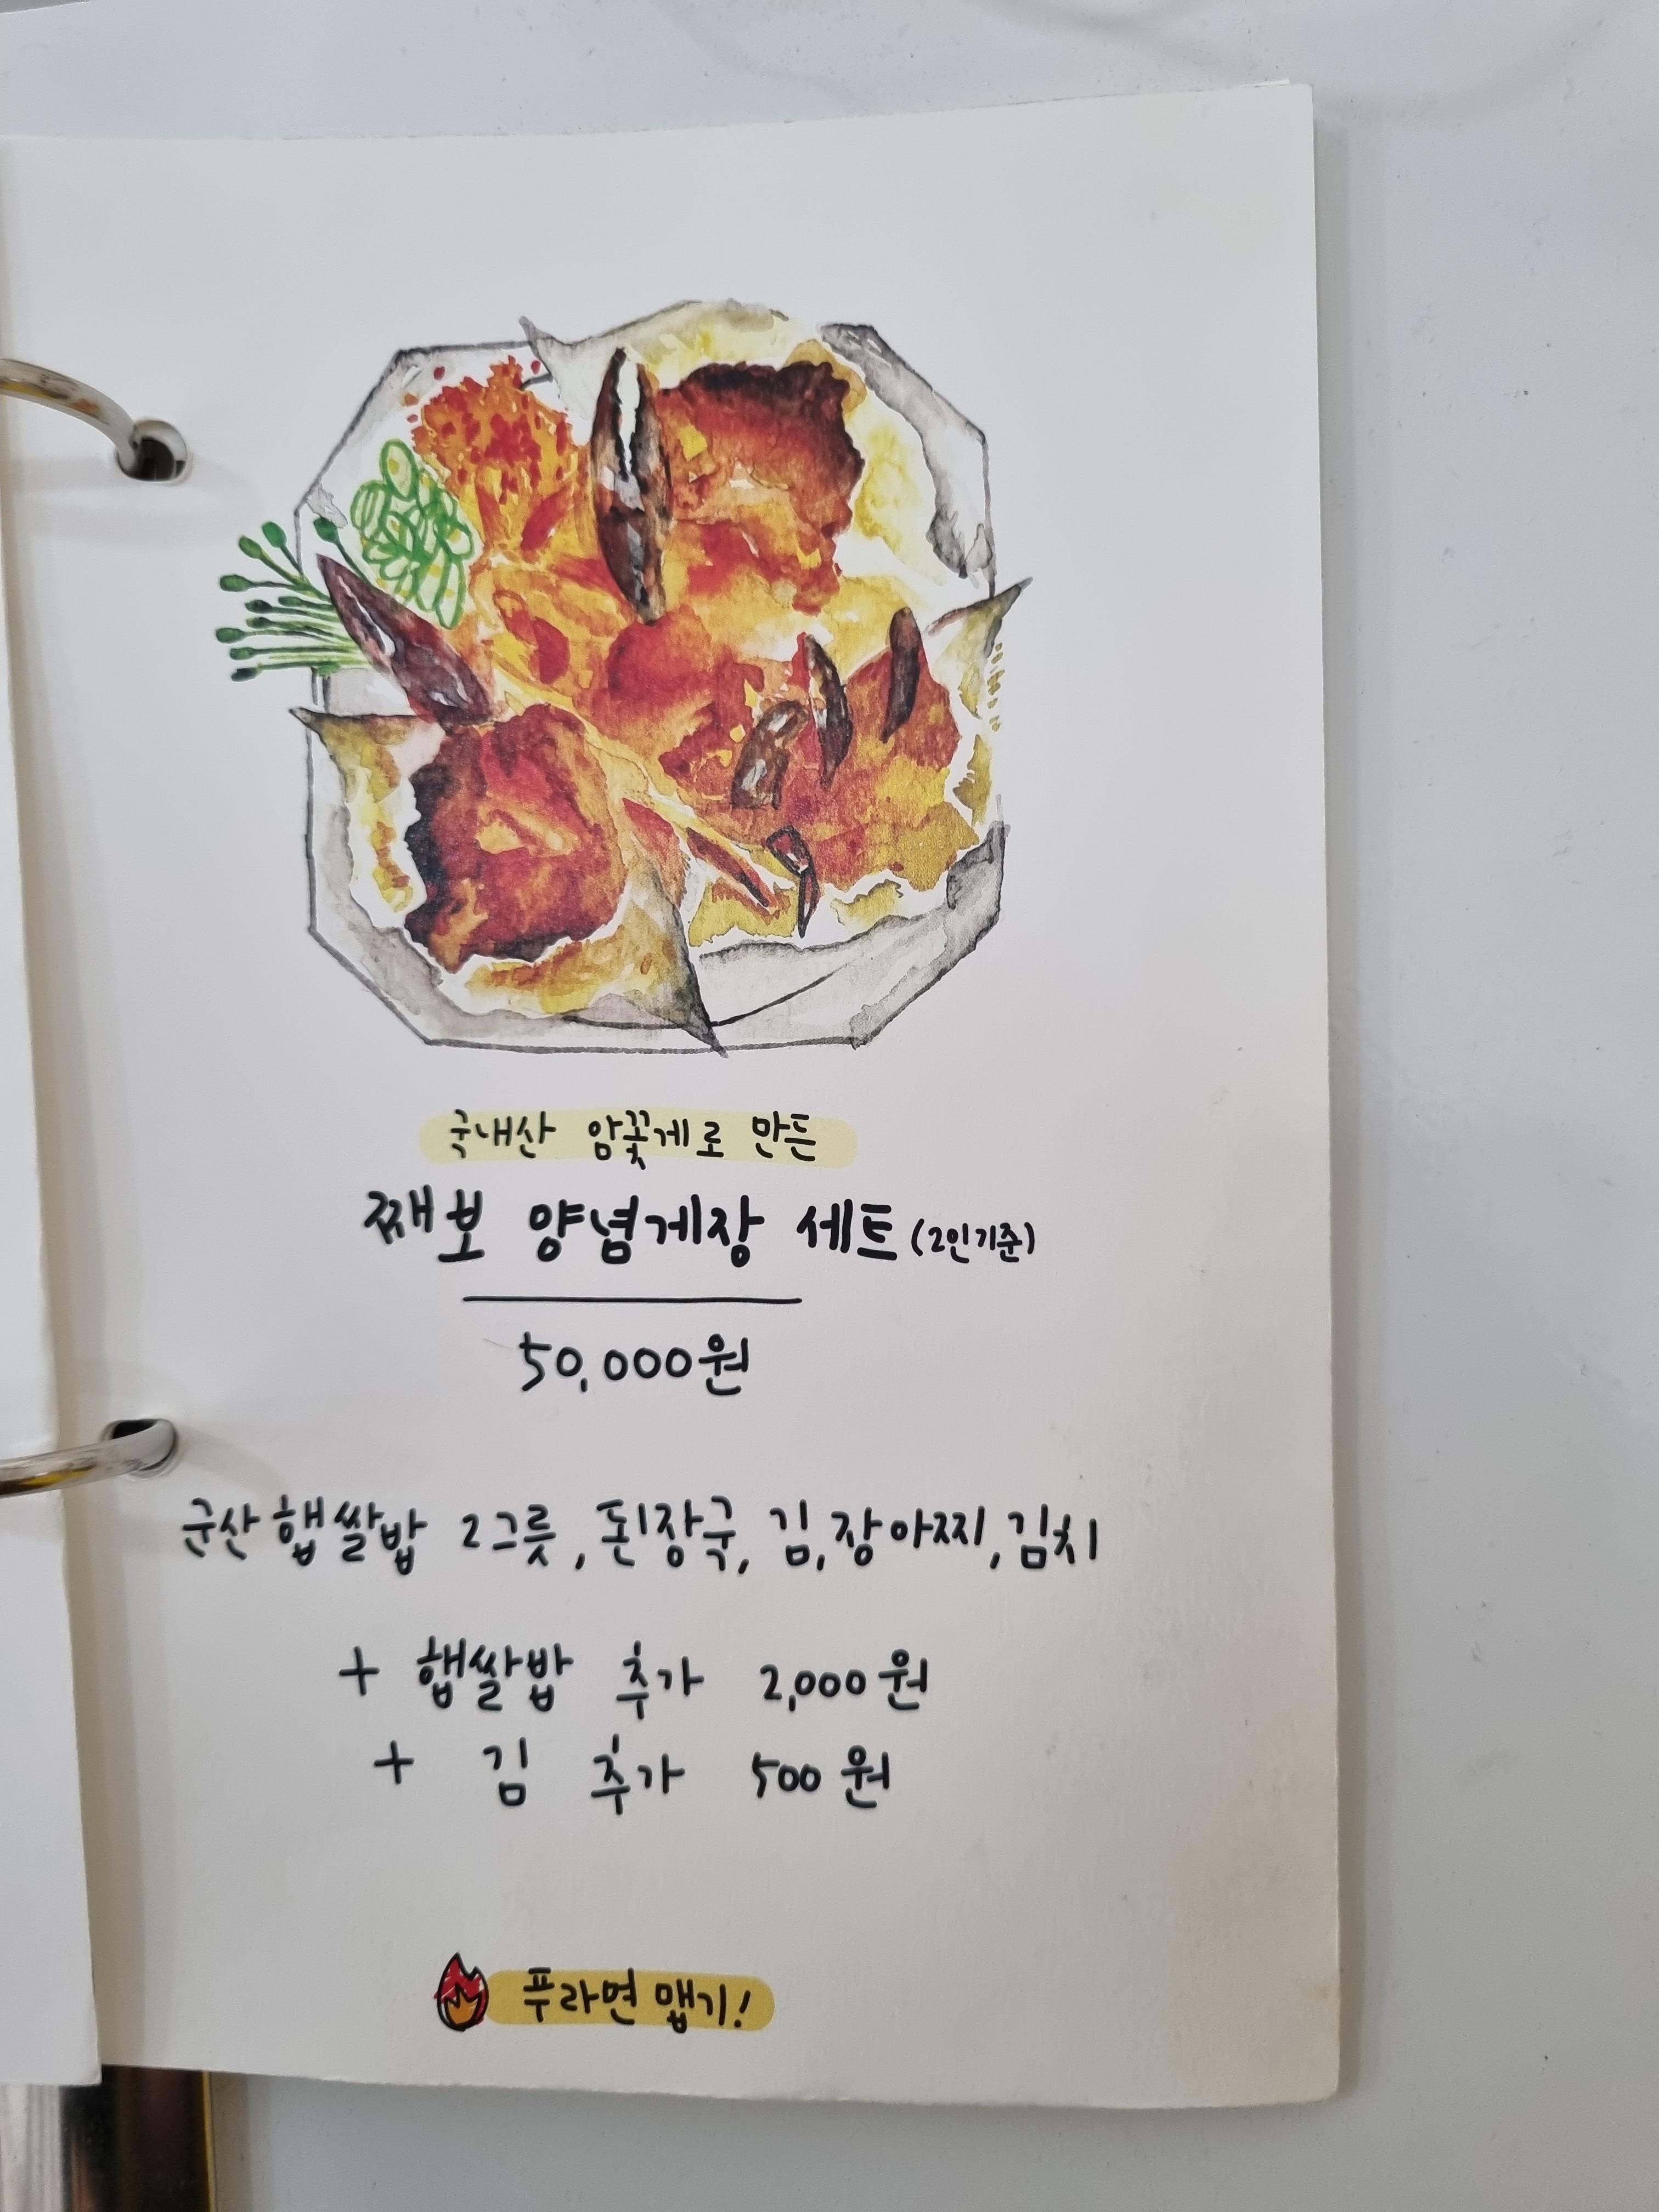 국내산 암꽃게로 만든
째보 양념게장 세트 (2인기준)
50,000원
군산 햅쌀밥 2그릇, 된장국, 김, 장아찌, 김치
+ 햅쌀밥 추가 2,000원
+ 김 추가 500원
푸라면 맵기!